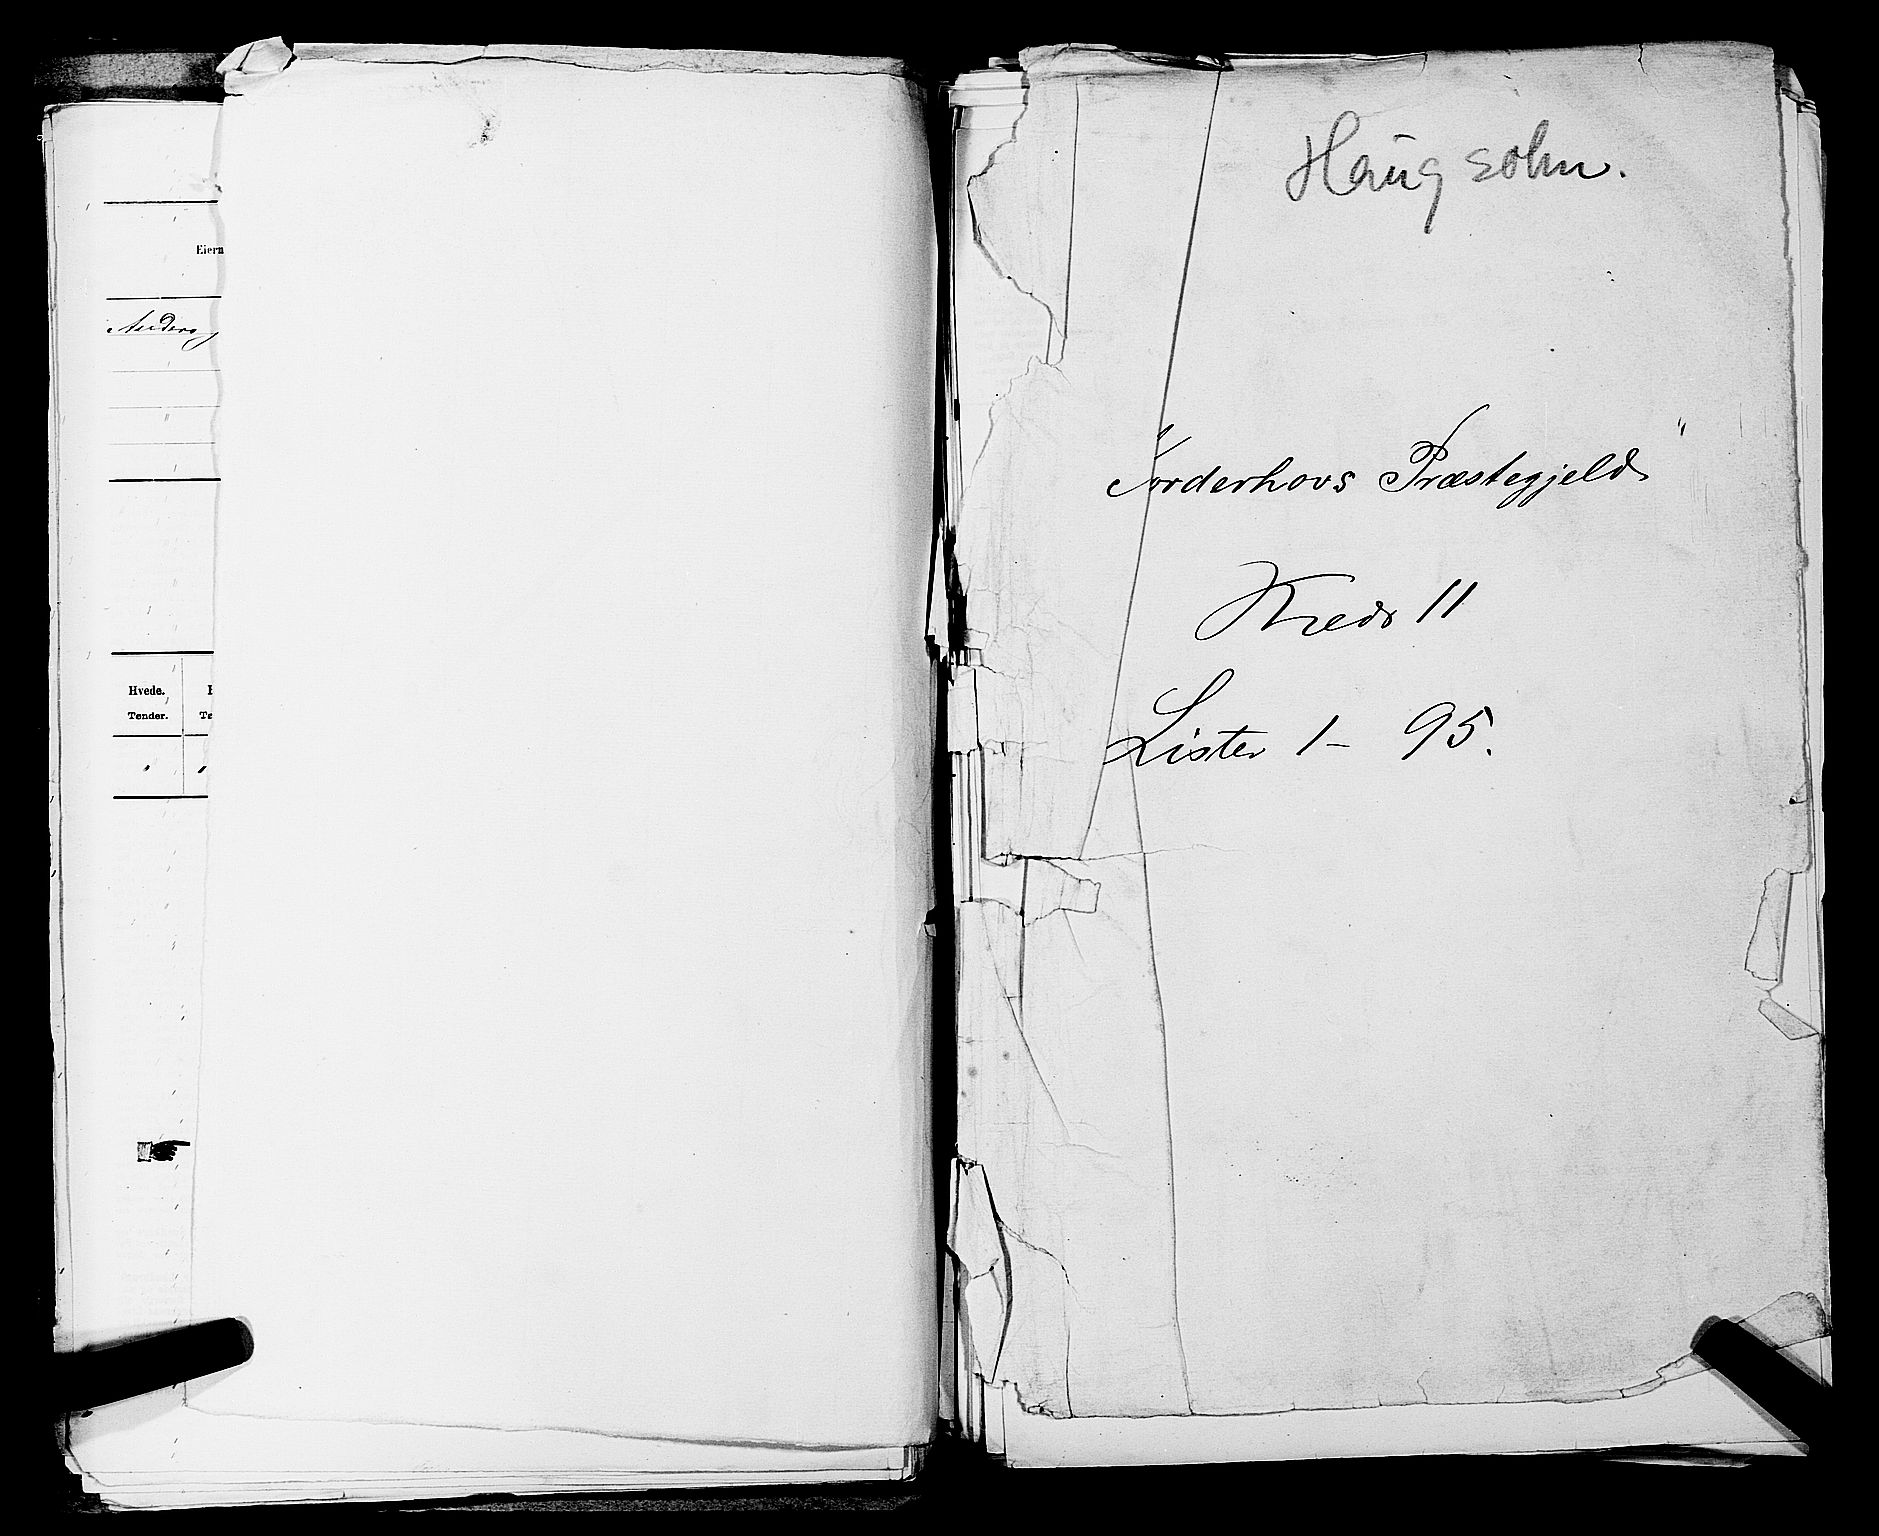 Eiern
Anders
Hvede.
Tønder. Tø
Haugsohn.
"Norderhovs Præstegjeld"
Kreds 11
Lister 1 - 95.